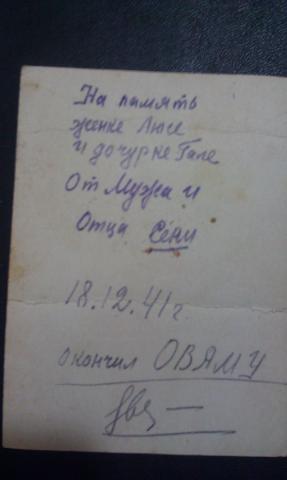 На память
женке Люсе
и дочурке Гале
От Мужа и
Отца Сени
18.12.41 г.
окончил ОВАМУ